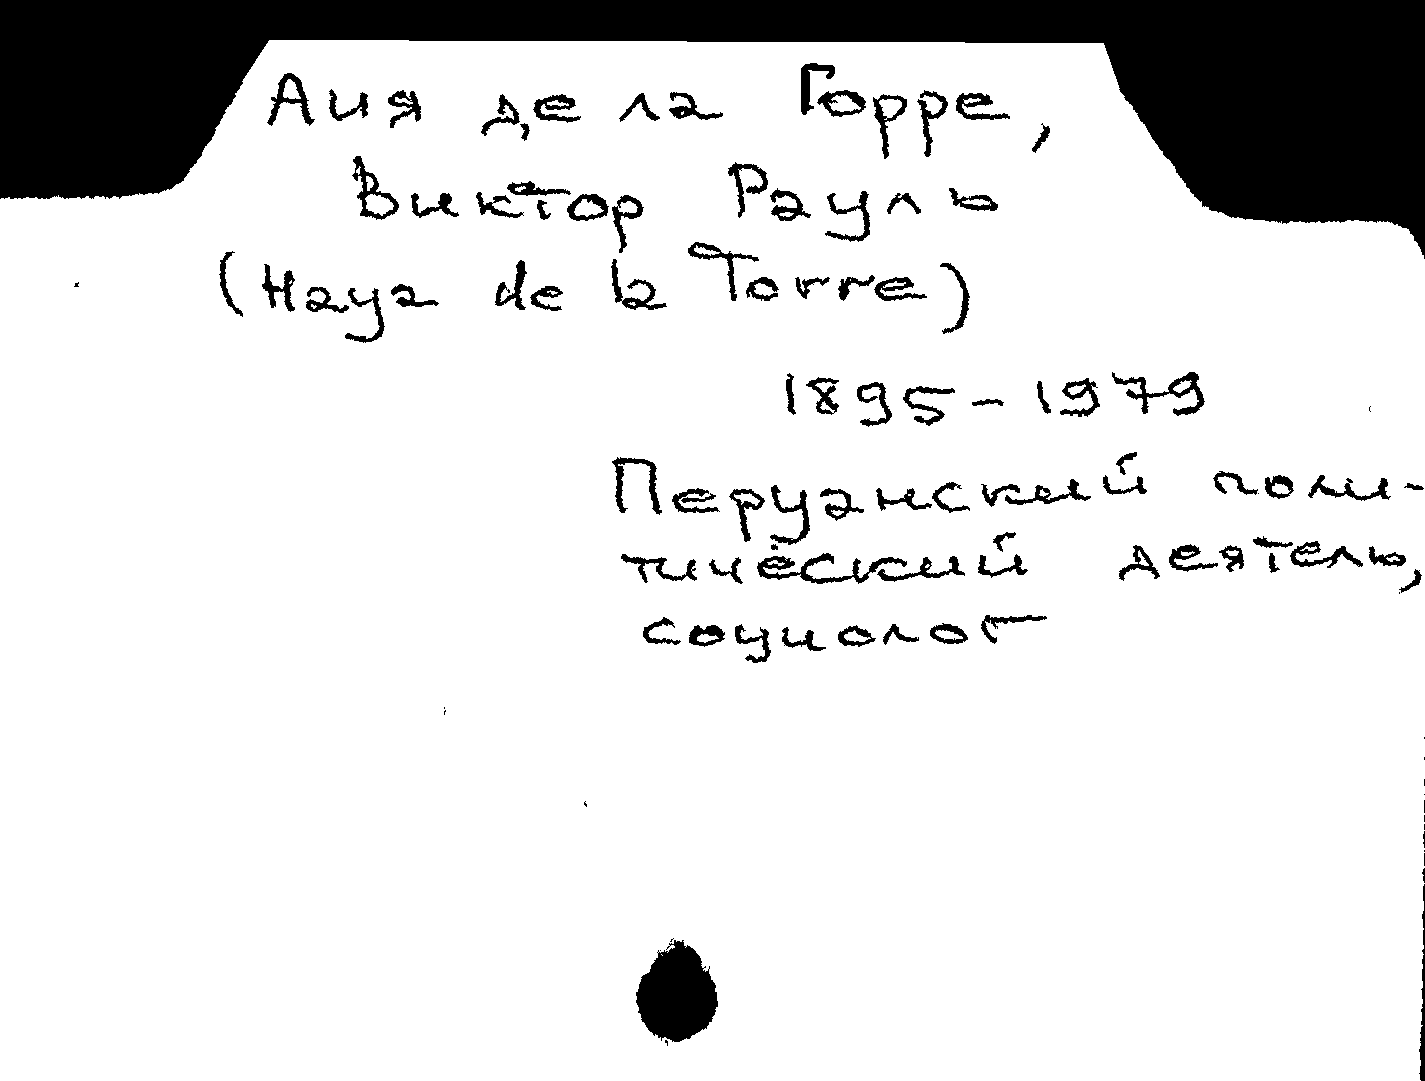 Аия де ла Горре,
Виктор Рауль
(Haya de la Torre)
1895-1979
Перуанский поли-
тический деятель,
социолог